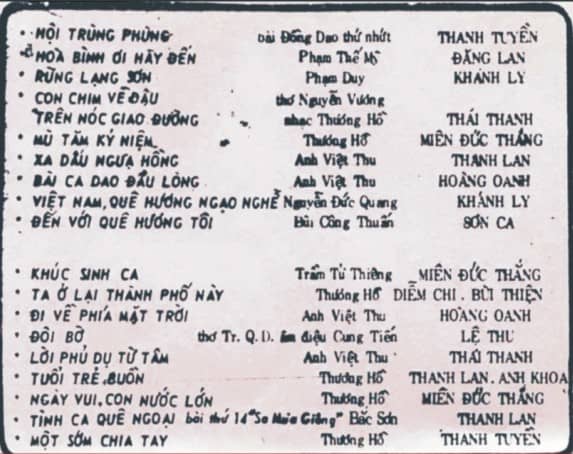 • HỘI TRÙNG PHÙNG bài Đồng Dao thứ nhứt THANH TUYỀN
• HOÀ BÌNH ƠI HÃY ĐẾN Phạm Thế Mỹ ĐĂNG LAN
• RỪNG LẠNG SƠN Phạm Duy KHÁNH LY
• CON CHIM VỀ ĐẬU thơ Nguyễn Vương
TRÊN NÓC GIAO ĐƯỜNG nhạc Thương Hồ THÁI THANH
• MÙ TĂM KỶ NIỆM Thương Hồ MIÊN ĐỨC THẮNG
• XA DẤU NGỰA HỒNG Anh Việt Thu THANH LAN
• BÀI CA DAO ĐẦU LÒNG Anh Việt Thu HOÀNG OANH
• VIỆT NAM, QUÊ HƯƠNG NGẠO NGHỄ Nguyễn Đức Quang KHÁNH LY
• ĐẾN VỚI QUÊ HƯƠNG TÔI Bùi Công Thuấn SƠN CA
• KHÚC SINH CA Trầm Tử Thiêng MIÊN ĐỨC THẮNG
• TA Ở LẠI THÀNH PHỐ NÀY Thương Hồ DIỄM CHI . BÙI THIỆN
• ĐI VỀ PHÍA MẶT TRỜI Anh Việt Thu HOÀNG OANH
• ĐÔI BỜ thơ Tr. Q.D. âm điệu Cung Tiến LỆ THU
• LỜI PHÙ DU TỪ TÂM Anh Việt Thu THÁI THANH
• TUỔI TRẺ BUỒN Thương Hồ THANH LAN . ANH KHOA
• NGÀY VUI, CON NƯỚC LỚN Thương Hồ MIÊN ĐỨC THẮNG
• TÌNH CA QUÊ NGOẠI bài thứ 14 "Sa Mưa Giông" Bắc Sơn THANH LAN
• MỘT SỚM CHIA TAY Thương Hồ THANH TUYỀN